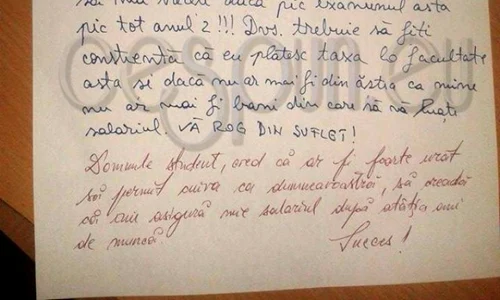 să mai trecem dacă pic examenul asta
pic tot anul 2 !!! Dvs. trebuie să fiți
conștientă că eu plătesc taxa la facultate
asta și dacă nu ar mai fi din ăștia ca mine
nu ar mai fi bani din care să vă luați
salariul. VĂ ROG DIN SUFLET!
Domnule student, cred că ar fi foarte urat
să permit cuiva ca dumneavoastră, să creadă
că îmi asigură mie salariul după atâția ani
de muncă.
Succes!